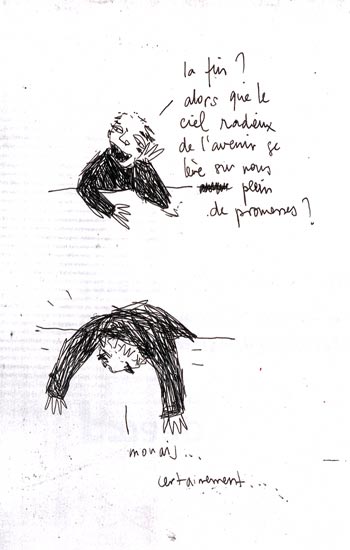 la fin ?
alors que le
ciel radieux
de l'avenir se
lève sur nous
plein
de promesses ?
mouais...
certainement...